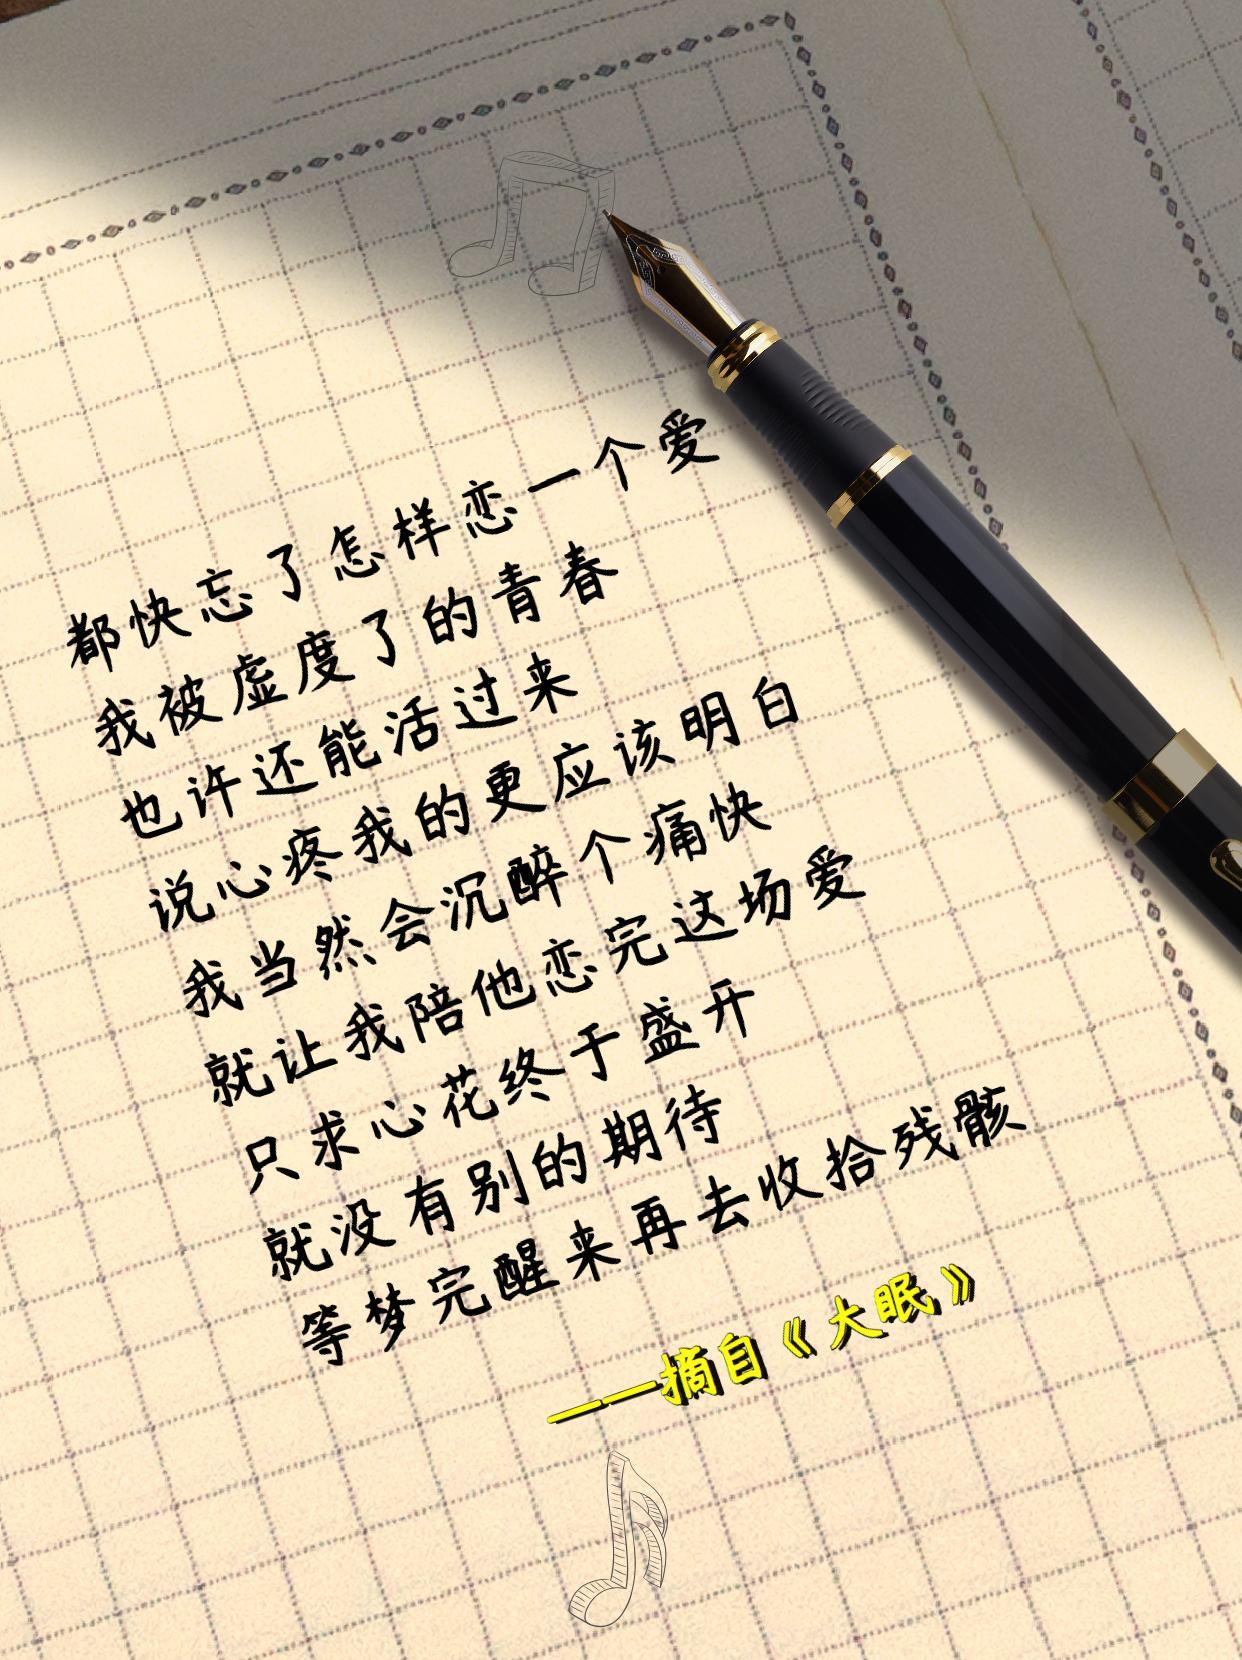 都快忘了怎样恋一个爱
我被虚度了的青春
也许还能活过来
说心疼我的更应该明白
我当然会沉醉个痛快
就让我陪他恋完这场爱
只求心花终于盛开
就没有别的期待
等梦完醒来再去收拾残骸
——摘自《大眠》